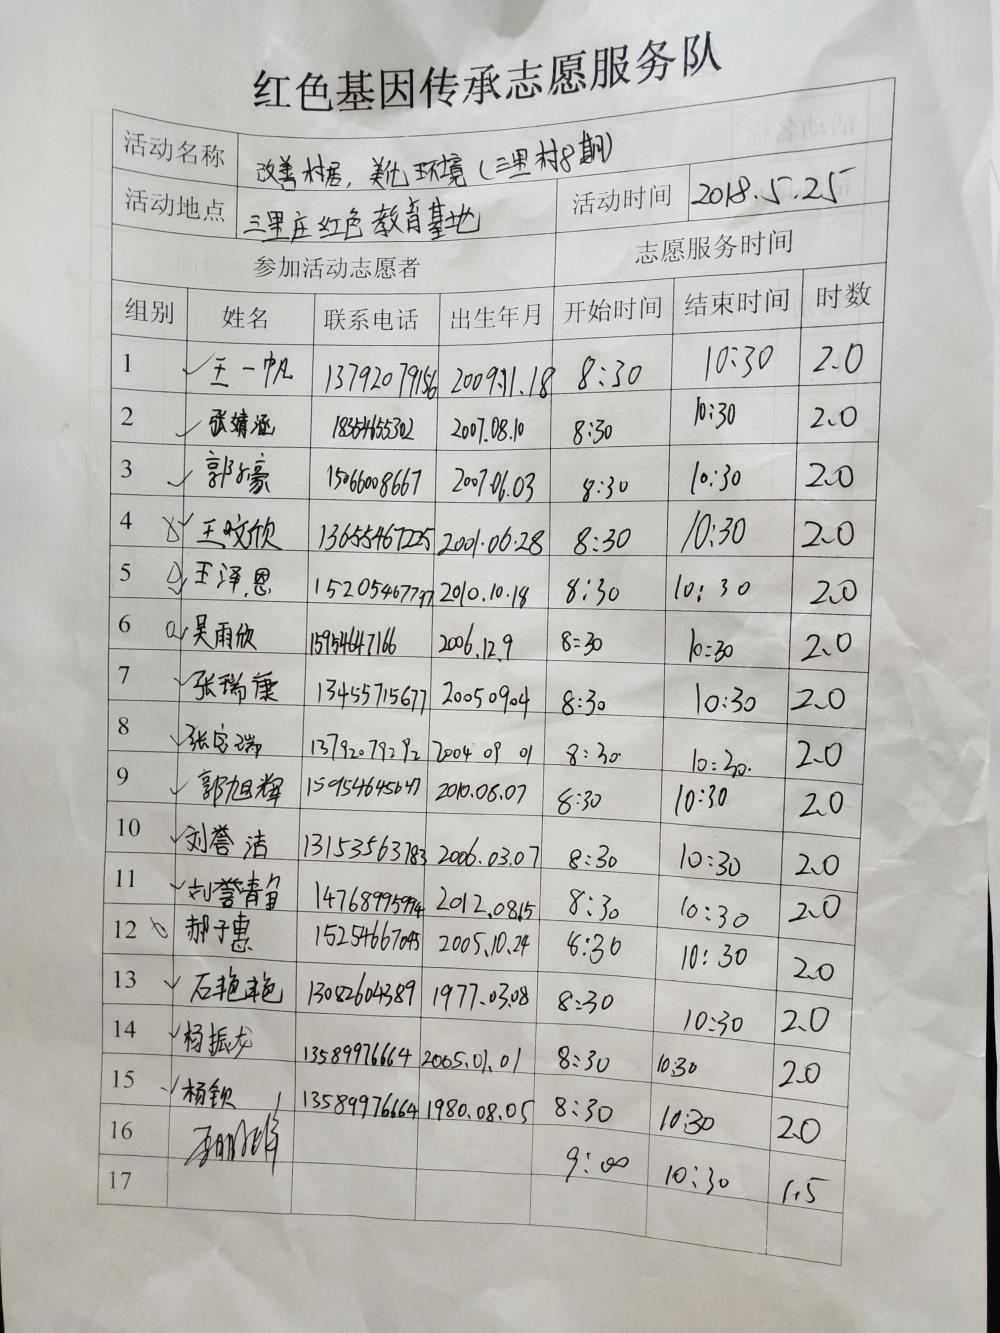 红色基因传承志愿服务队
活动名称 改善村居，美化环境（三里村8期）
活动地点 三里庄红色教育基地 活动时间 2018.5.25
参加活动志愿者 志愿服务时间
组别 姓名 联系电话 出生年月 开始时间 结束时间 时数
1 王一帆 13792079156 2009.11.18 8:30 10:30 2.0
2 张婧涵 18354655302 2007.08.10 8:30 10:30 2.0
3 郭子豪 15066008667 2007.06.03 8:30 10:30 2.0
4 王欣 13655467225 2001.06.28 8:30 10:30 2.0
5 王泽恩 15205467797 2010.10.18 8:30 10:30 2.0
6 吴雨欣 15954647166 2006.12.9 8:30 10:30 2.0
7 张瑞康 13455715677 20050904 8:30 10:30 2.0
8 张宝瑞 13792079292 2004 09 01 8:30 10:30. 2.0
9 郭旭辉 15954645647 2010.08.07 8:30 10:30 2.0
10 刘誉洁 13153563783 2006.03.07 8:30 10:30 2.0
11 刘誉静 14768995994 2012.0815 8:30 10:30 2.0
12 郝子惠 15254667045 2005.10.24 8:30 10:30 2.0
13 石艳艳 13082604389 1977.03.08 8:30 10:30 2.0
14 杨振龙 13589976664 2005.01.01 8:30 10:30 2.0
15 杨钦 13589976664 1980.08.05 8:30 10:30 2.0
16 9:00 10:30 1.5
17